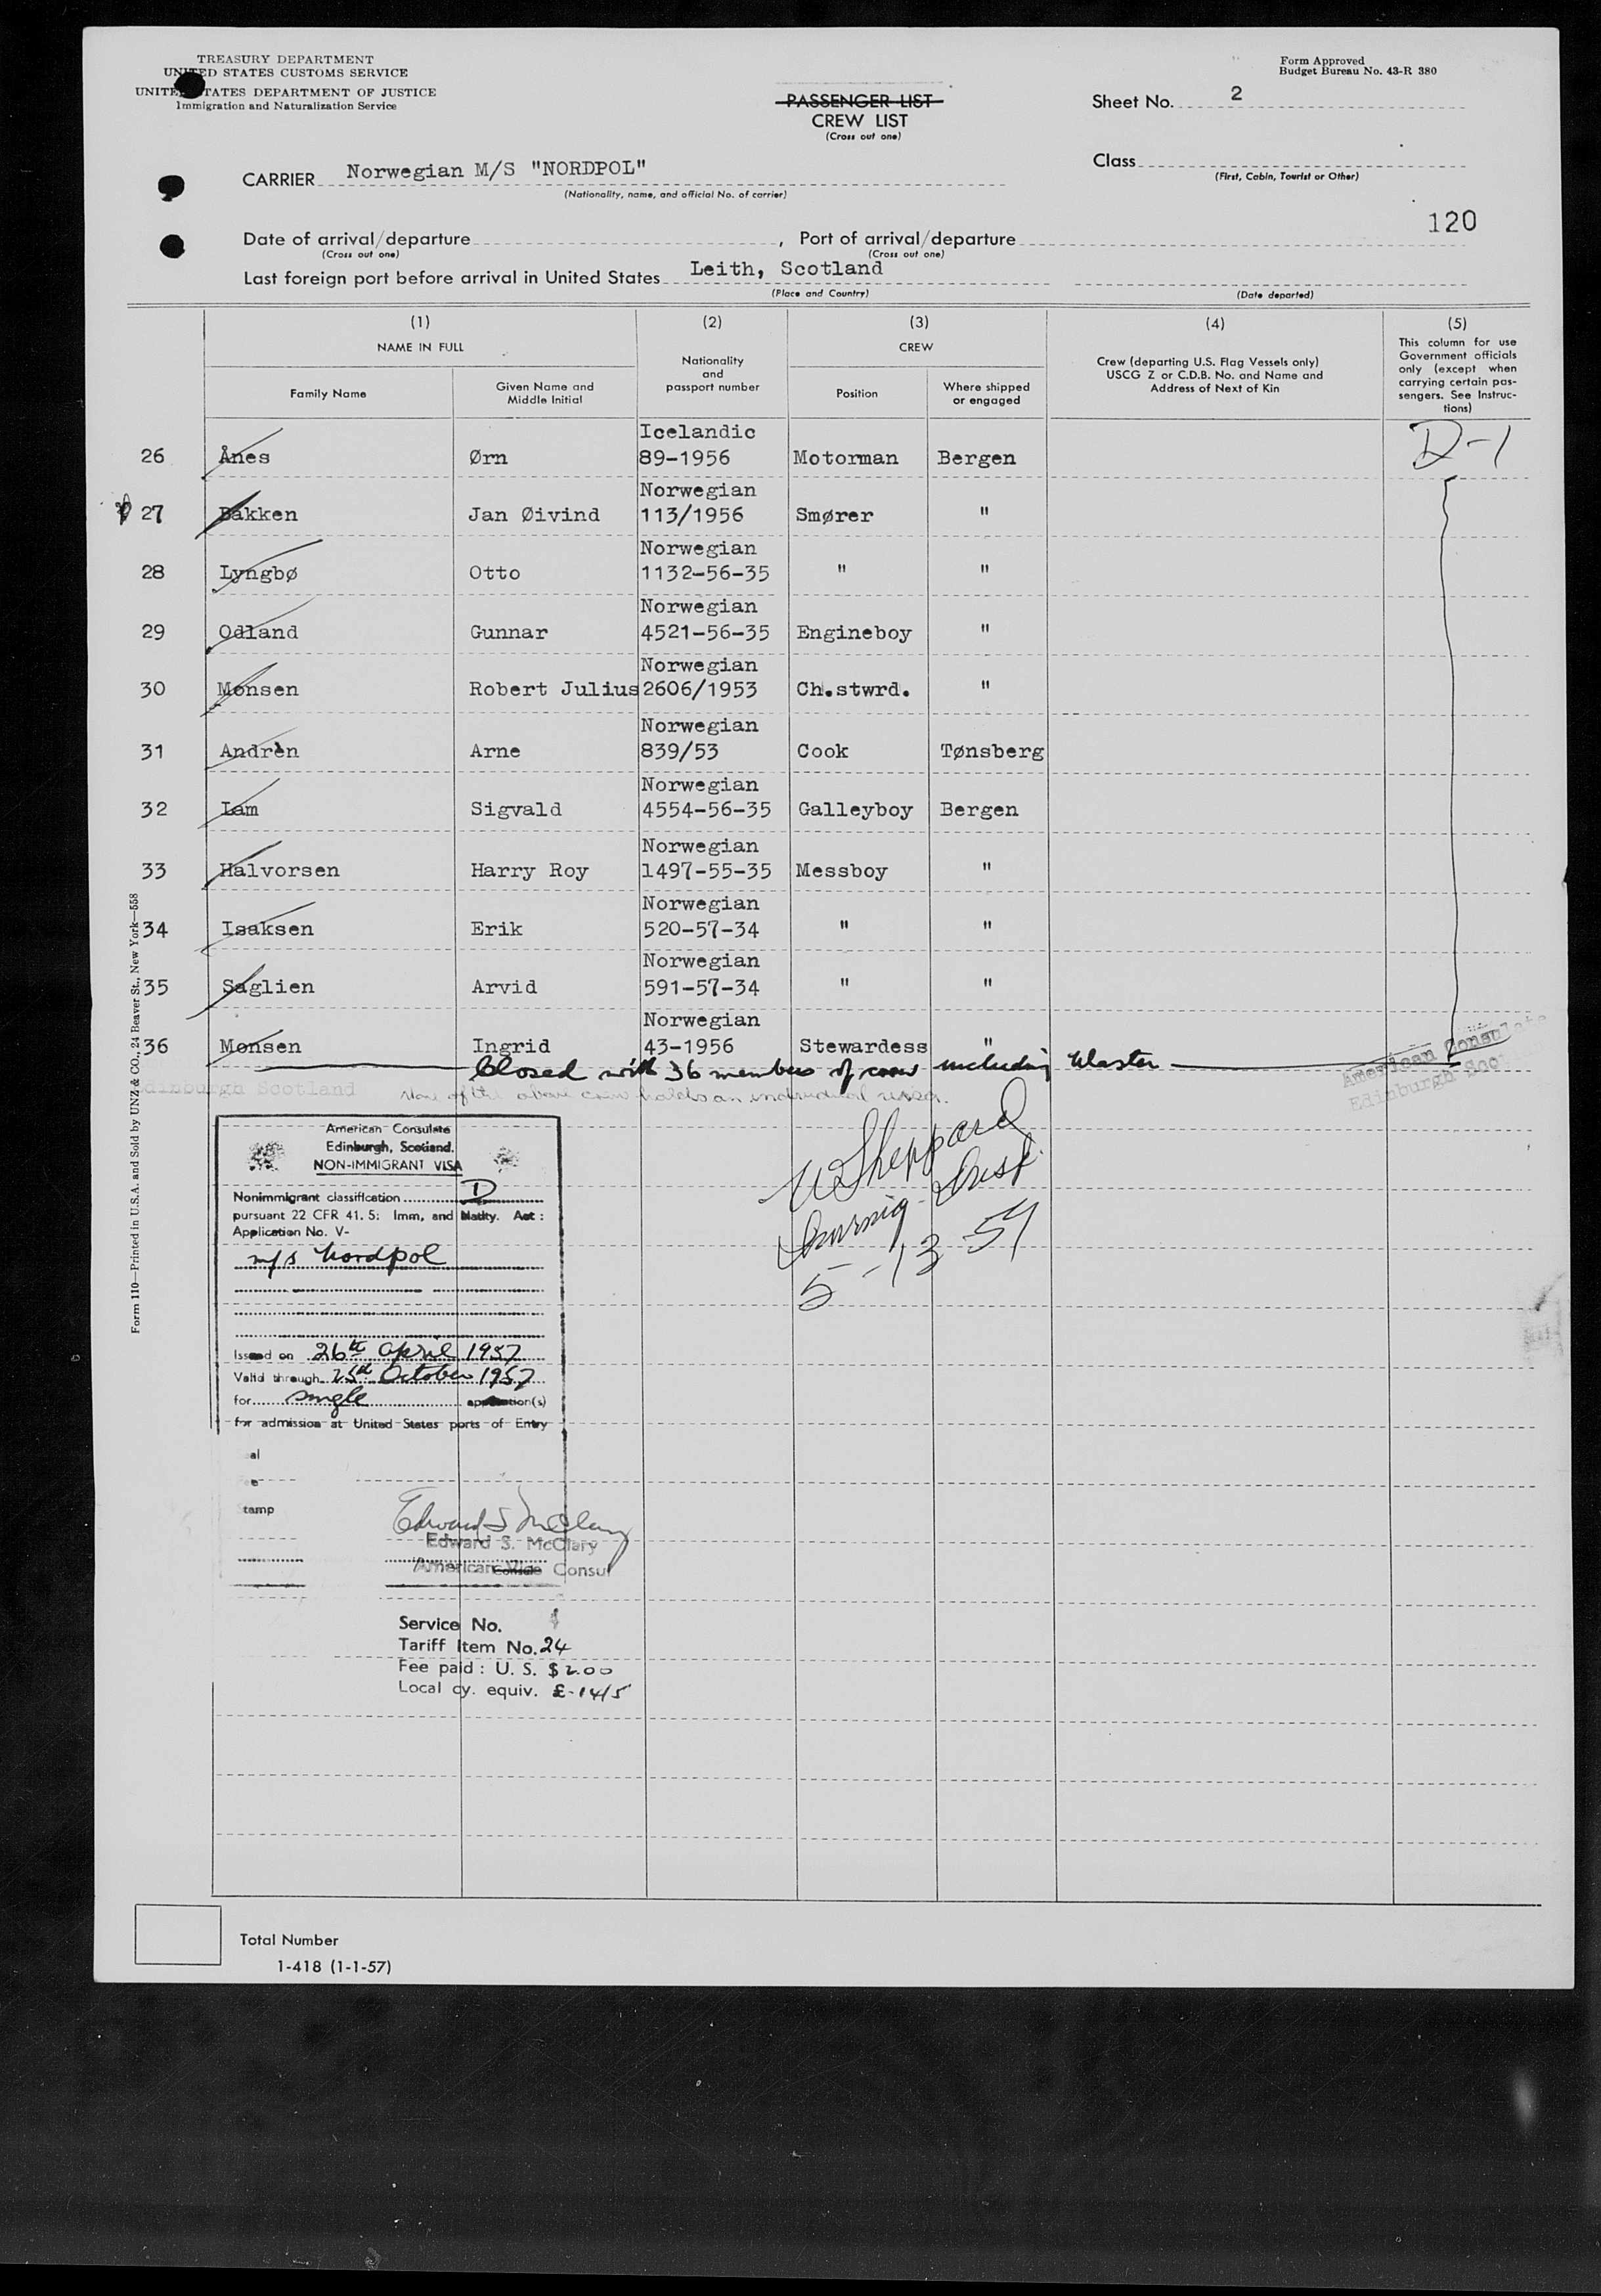 TREASURY DEPARTMENT
UNITED STATES CUSTOMS SERVICE
UNITED STATES DEPARTMENT OF JUSTICE
Immigration and Naturalization Service
Form Approved
Budget Bureau No. 43-R 380
PASSENGER LIST
CREW LIST
(Cross out one)
Sheet No. 2
CARRIER Norwegian M/S "NORDPOL"
(Nationality, name, and official No. of carrier)
Class
(First, Cabin, Tourist or Other)
120
Date of arrival/departure , Port of arrival/departure
(Cross out one) (Cross out one)
Last foreign port before arrival in United States Leith, Scotland
(Place and Country) (Date departed)
(1) (2) (3) (4) (5)
NAME IN FULL
Family Name
Given Name and
Middle Initial
Nationality
and
passport number
CREW
Position
Where shipped
or engaged
Crew (departing U.S. Flag Vessels only)
USCG Z or C.D.B. No. and Name and
Address of Next of Kin
This column for use
Government officials
only (except when
carrying certain pas-
sengers. See Instruc-
tions)
Icelandic
26 Ånes Ørn 89-1956 Motorman Bergen D-1
Norwegian
27 Bakken Jan Øivind 113/1956 Smører "
Norwegian
28 Lyngbø Otto 1132-56-35 " "
Norwegian
29 Odland Gunnar 4521-56-35 Engineboy "
Norwegian
30 Monsen Robert Julius 2606/1953 Ch.stwrd. "
Norwegian
31 Andrèn Arne 839/53 Cook Tønsberg
Norwegian
32 Lam Sigvald 4554-56-35 Galleyboy Bergen
Norwegian
33 Halvorsen Harry Roy 1497-55-35 Messboy "
Norwegian
34 Isaksen Erik 520-57-34 " "
Norwegian
35 Saglien Arvid 591-57-34 " "
Norwegian
36 Monsen Ingrid 43-1956 Stewardess "
Closed with 36 members of crew including Master
American Consul
Edinburgh
Edinburgh Scotland
of the above crew holds an individual
American Consulate
Edinburgh, Scotland.
NON-IMMIGRANT VISA
Nonimmigrant classification D
pursuant 22 CFR 41. 5: Imm, and Natlty. Act :
Application No. V-
m/s Nordpol
Issued on 26th April 1957
Valid through 25th October 1957
for single application(s)
for admission at United States ports of Entry
al
e
tamp
Edward S McClary
Edward S. McClary
American Vice Consul
Service No.
Tariff Item No. 24
Fee paid : U. S. $ 2.00
Local cy. equiv. £-14/5
W Sheppard
Immig Insp.
5-13-57
Form 110—Printed in U.S.A. and Sold by UNZ & CO., 24 Beaver St., New York—558
Total Number
1-418 (1-1-57)